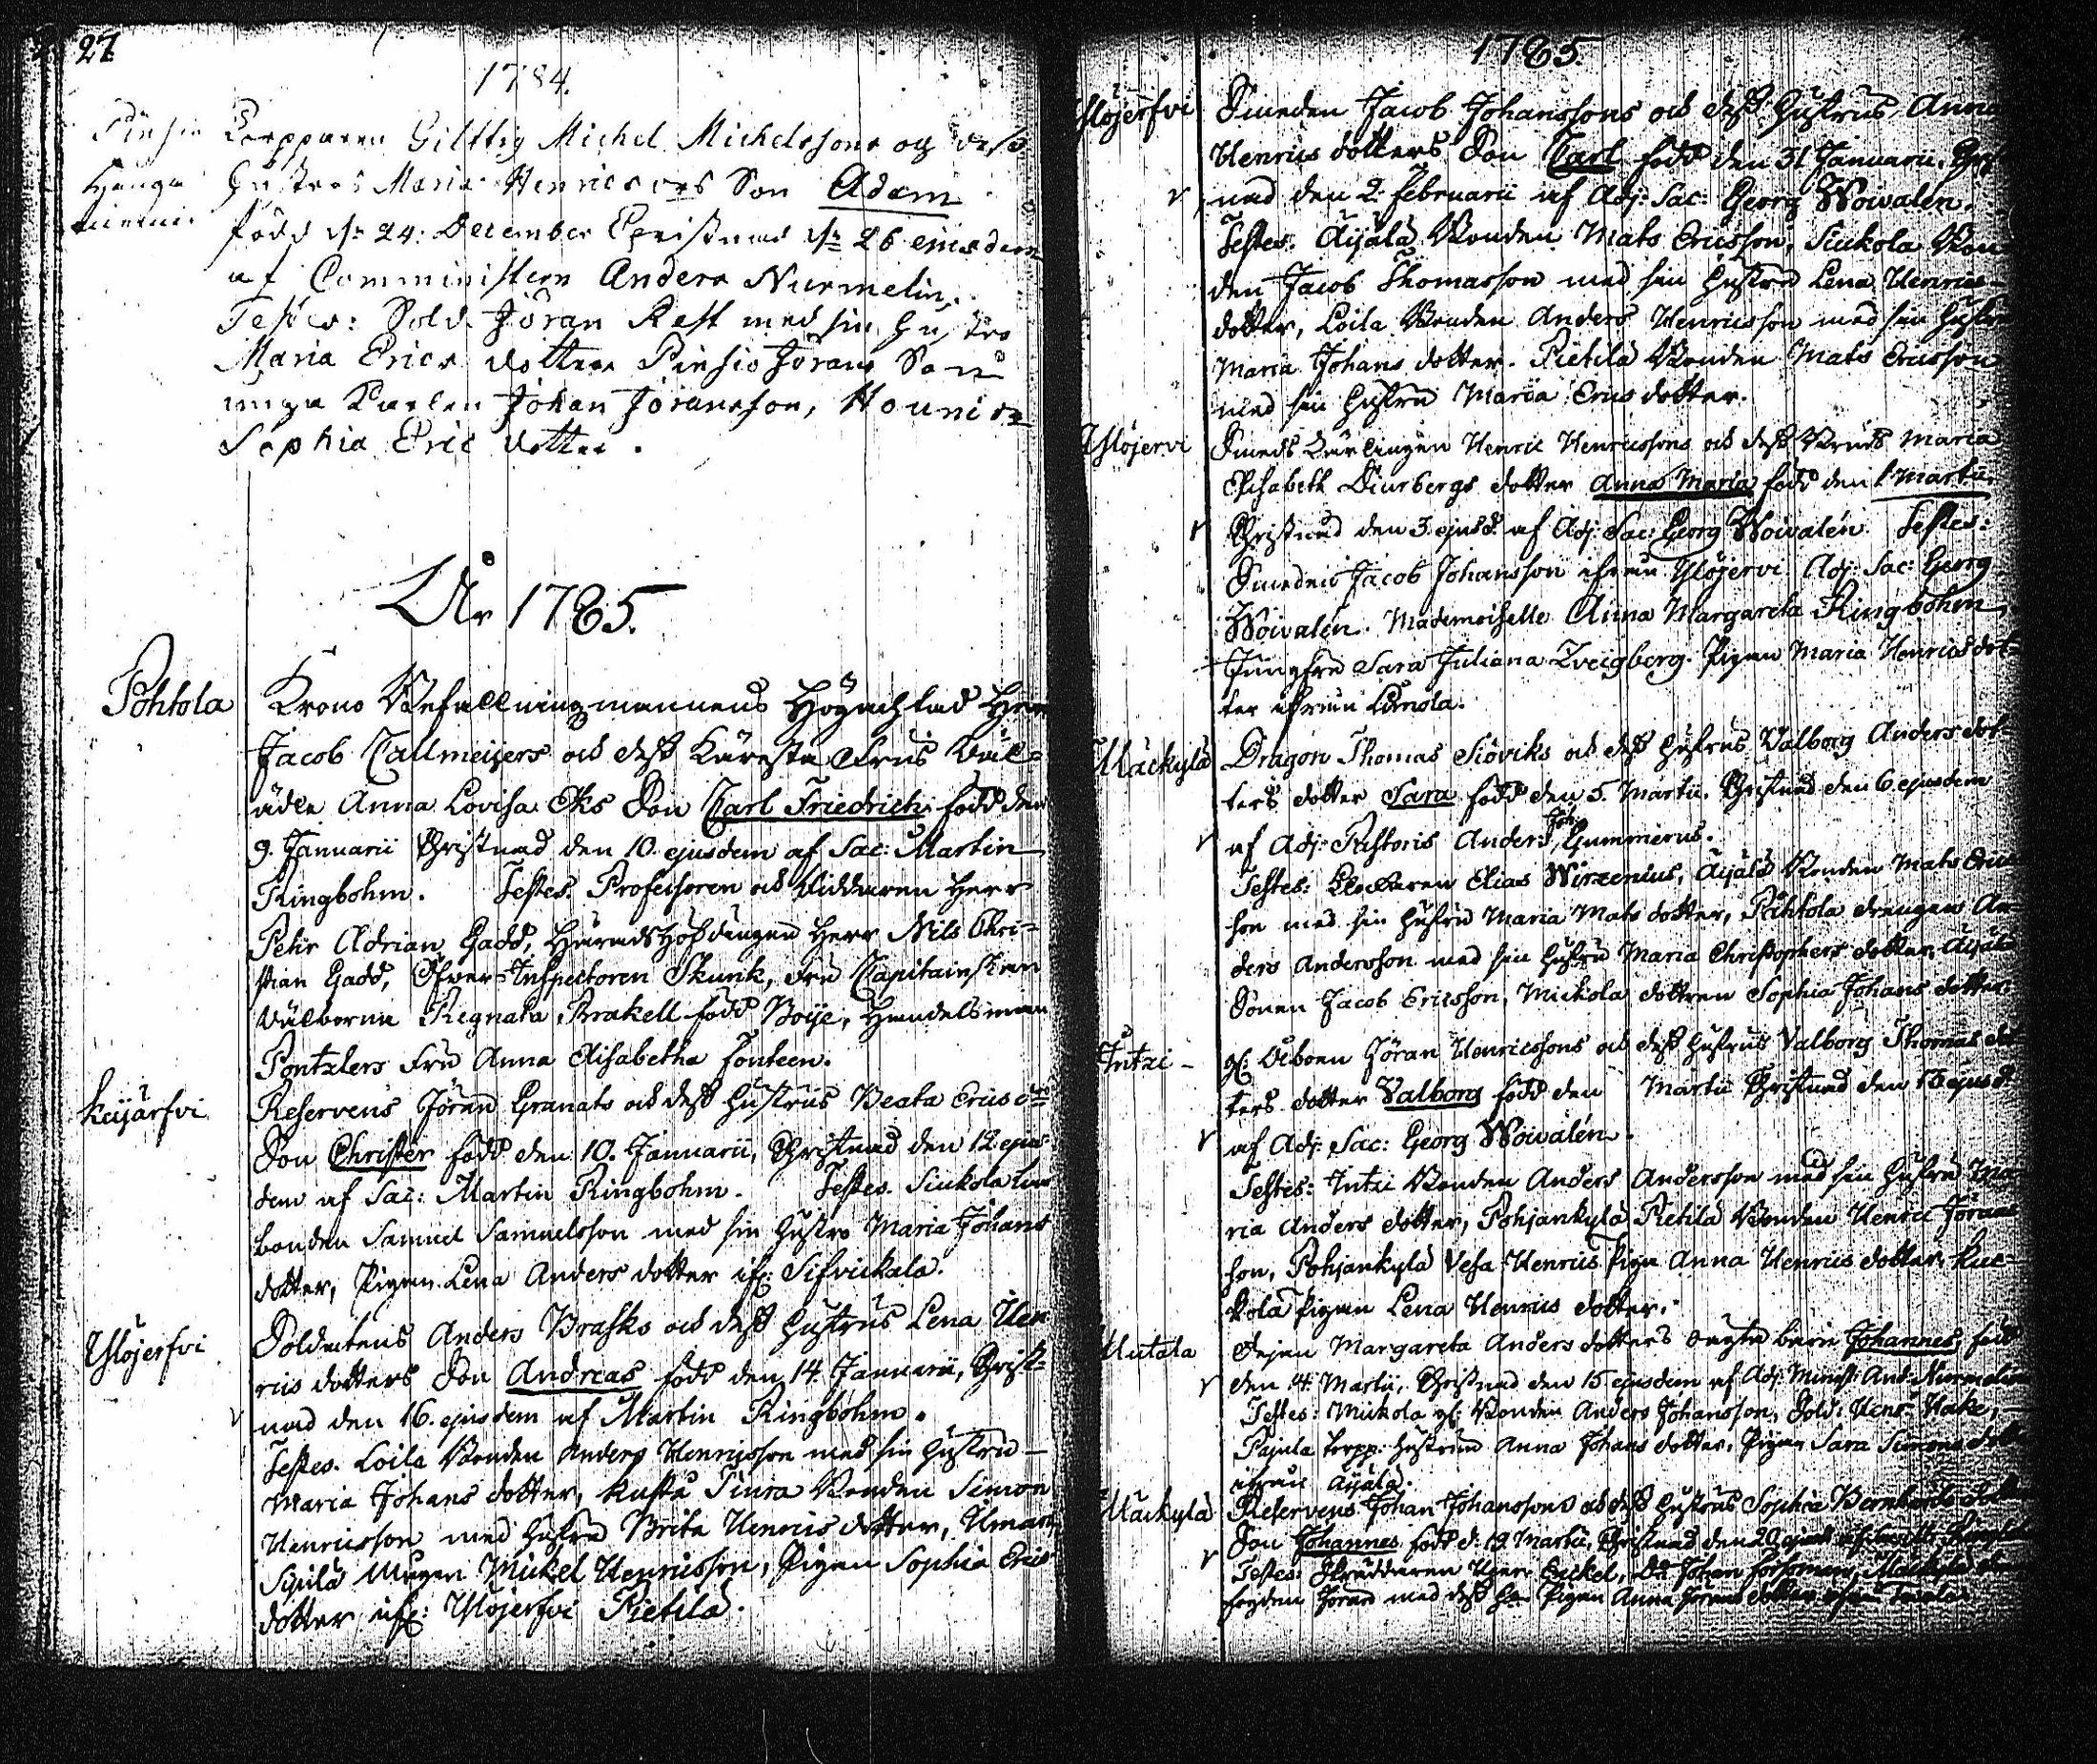 27
1784.
Pinsiö Torpparen Gilttig Michel Michelssons og dess
Hanga hustrus Maria Henrics drs Son Adam
niemi. född dn 24: December Christnad dn 26 ejusdem
af Comministern Anders Nurmelin.
Testes: Sold. Jöran Rast med sin hustro
Maria Erics dotter Pinsiö Jörans Son
unga Karlen Johan Joransson, Hounion
Sophia Eric dotter.
År 1785.
Pohtola Krono Befallningzmannens Högachtad Herr
Jacob Callmeijers och dess Käresta Frus Väl-
ädle Anna Lovisa Eks Son Carl Friedrich född den
9. Januarii Christnad den 10. ejusdem af Sac: Martin
Ringbohm. Testes. Professoren och Riddaren Herr
Pehr Adrian Gadd, Häradshöfdingen Herr Nils Chri-
stian Gadd, Öfver-Inspectoren Skunk, Fru Capitainskan
Välborna Regnata Brakell född Boije, Handelsman
Pontzlers Fru Anna Elisabetha Fonteen.
Keijärfvi Reservens Jöran Granats och dess hustrus Beata Erics drs
Son Christer född den 10. Januarii, Christnad den 12. ejus-
dem af Sac: Martin Ringbohm. Testes. Siukola
bonden Samuel Samuelsson med sin hustro Maria Johans
dotter, Pigan Lena Anders dotter ifr: Sifvickala.
Ylöjerfvi Soldatens Anders Brasks och dess hustrus Lena Hen
rics dotters Son Andreas född den 14. Januarii, Christ-
nad den 16. ejusdem af Martin Ringbohm.
Testes. Loila Bonden Anders Henricsson med sin hustru
Maria Johans dotter, Kusta Simon
Henricsson med hustru Brita Henrics dotter,
Sipilä Mickel Henricsson, Pigan Sophia Erics
dotter ifr: Ylöjerfvi Pietilä.
1785
Ylöjerfvi Smeden Jacob Johanssons och dess hustrus Anna
Henrics dotters Son Carl född den 31 Januarii, Christ
nad den 2. Februarii af Adj: Sac: Georg Woivalén.
Testes. Äijälä Bonden Mats Ericsson, Siukola Bon-
den Jacob Thomasson med sin hustru Lena Henrics-
dotter, Loila Bonden Anders Henricsson med sin hustru
Maria Johans dotter. Pietilä Bonden Mats Ericsson
med sin hustru Maria Erics dotter.
Ylöjervi Smeds Lärlingen Henric Henricssons och dess Maria
Elisabeth Diurbergs dotter Anna Maria född den 1 Martii.
Christnad den 3. ejusd. af Adj: Sac: Georg Woivalén. Testes:
Smeden Jacob Johansson ifrån Ylöjervi Adj: Sac: Georg
Woivalén. Mademoiselle Anna Margareta Ringbohm,
Jungfru Sara Juliana Zveigberg. Pigan Maria Henrics dot-
ter ifrån
Mäckylä Dragon Thomas Siöviks och dess hustrus Valborg Anders dot-
ters dotter Sara född den 5. Martii. Christnad den 6. ejusdem
af Adj: Pastoris Anders Joh: Gummerus.
Testes: Klockaren Elias Wirzenius, Äijälä Bonden Mats Erics
son med sin hustru Maria Mats dotter, Pohtola drengen An-
ders Andersson med sin hustru Maria Christophers dotter, Äijälä
Sonen Jacob Ericsson, Mickola dottren Sophia Johans dotter.
Intzi- Jöran Henricssons och dess hustrus Valborg Thomas dot
ters dotter Valborg född den Martii Christnad den 15 ejusd.
af Adj: Sac: Georg Woivalén.
Testes: Intzi Bonden Anders Andersson med sin hustru Ma
ria Anders dotter, Pohjankylä Pietilä Bonden Henric Jörans
son, Pohjankylä Vesa Henrics Piga Anna Henrics dotter, Kuc-
kola Pigan Lena Henrics dotter.
Mutala Pigan Margareta Anders dotters oägta barn Johannes född
den 14. Martii, Christnad den 15 ejusdem af Adj: Minist: And. Nurmelin
Testes: Mickola Bonden Anders Johansson, Sold. Henr. Hake,
Pajula torpp: hustrun Anna Johans dotter, Pigan Sara Simons dotter
ifrån Äijälä.
Mäckylä Reservens Johan Johanssons och dess hustrus Sophia Bernhards
Son Johannes född d. 19. Martii, Christnad den 20
Testes: Skräddaren Henr. Eickel, Johan Forssman, Mäckylä
Jöran med dess Pigan Anna Jörans dotter